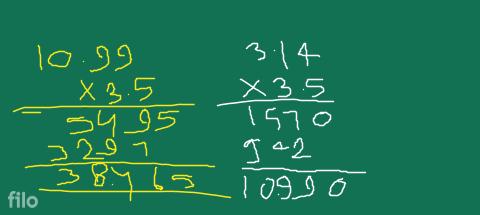 10.99
x3.5
5495
3297
38.465
3.14
x3.5
1570
942
10.990
filo